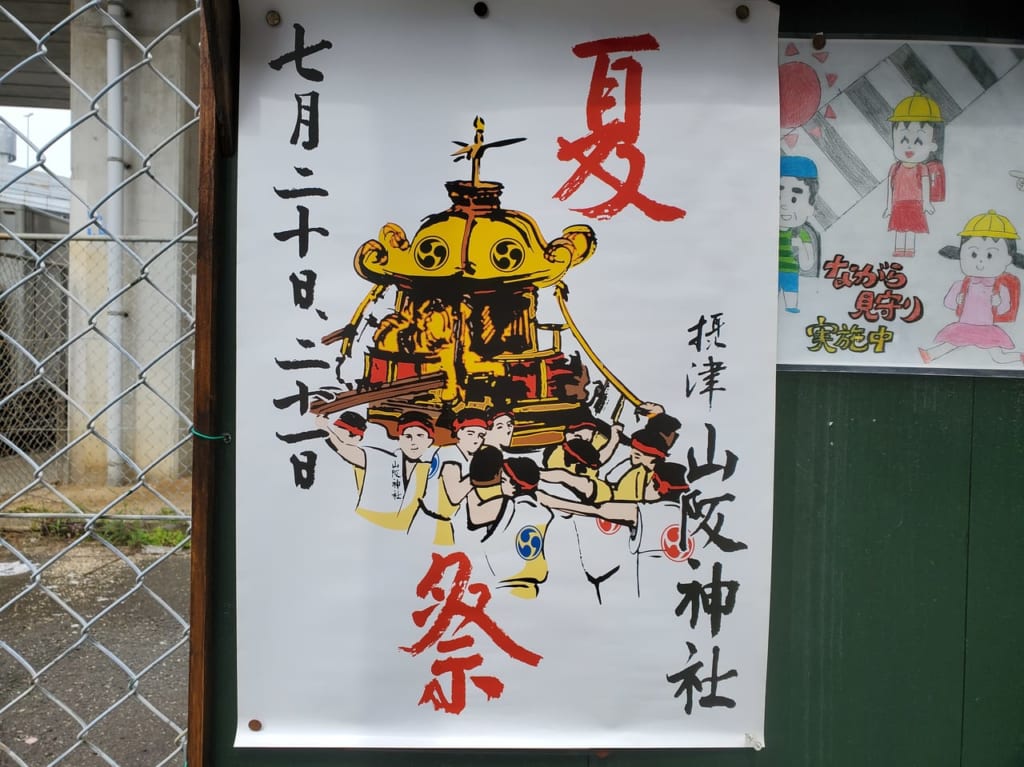 夏
祭
摂津 山阪神社
七月二十日、二十一日
山阪神社
ながら
見守り
実施中